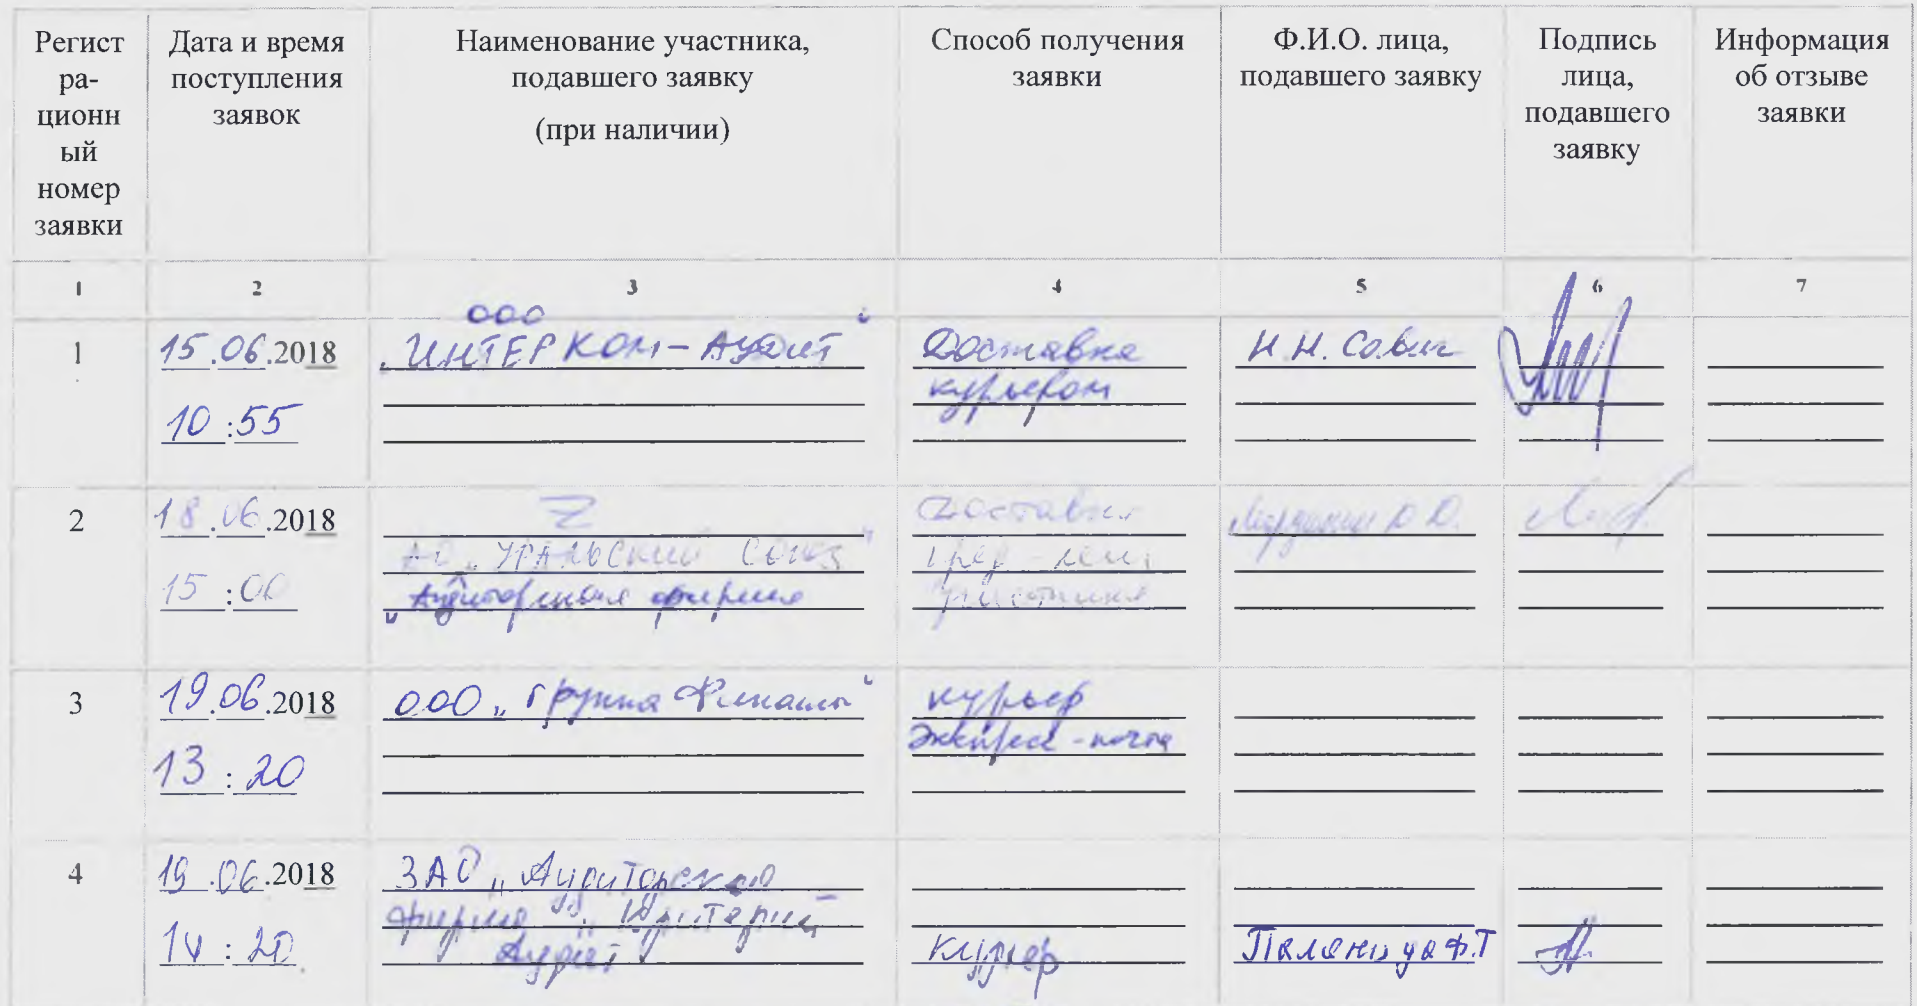 Регист
ра-
ционн
ый
номер
заявки
Дата и время
поступления
заявок
Наименование участника,
подавшего заявку
(при наличии)
Способ получения
заявки
Ф.И.О. лица,
подавшего заявку
Подпись
лица,
подавшего
заявку
Информация
об отзыве
заявки
1 2 3 4 5 6 7
ООО
1 15.06.2018 „ИНТЕРКОМ-АУДИТ" Доставка Н.Н.
курьером
10:55
Доставка
2 18.06.2018
АО „УРАЛЬСКИЙ СОЮЗ"
15:00 „Аудиторская фирма участника
3 19.06.2018 ООО „Группа Финансы" курьер
Экспресс-почта
13:20
4 19.06.2018 ЗАО „Аудиторская
фирма „Критерий
14:20 Аудит курьер Паляница Ф.Т